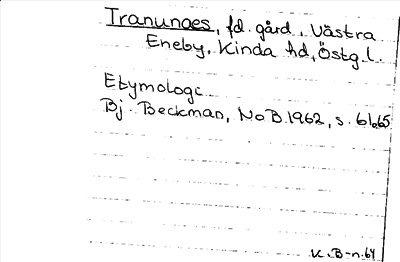 Tranunaes, fd. gård, Västra
Eneby, Kinda hd, Östg.l.
Etymologc
Bj. Beckman, NoB.1962, s. 61,65
K.B-n.64